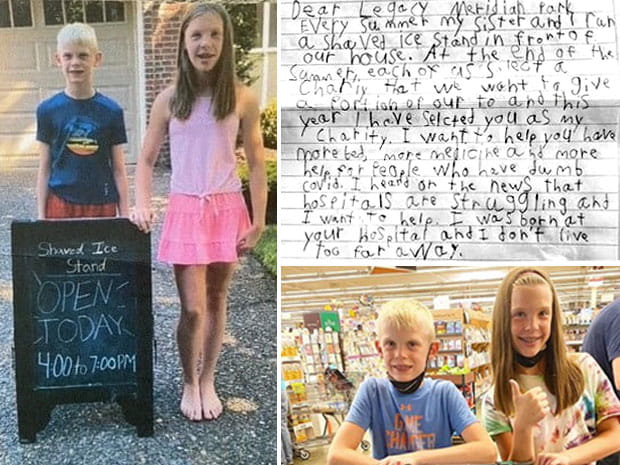 Shaved Ice
Stand
OPEN
TODAY
4:00 to 7:00PM
Dear Legacy Meridian Park
Every summer my sister and I run
a shaved ice stand in front of
our house. At the end of the
summer, each of us select a
charity that we want to give
a portion of our to and this
year I have selected you as my
charity. I want to help you have
more bed, more medicine and more
help for people who have dumb
covid. I heard on the news that
hospitals are struggling and
I want to help. I was born at
your hospital and I don't live
too far away.